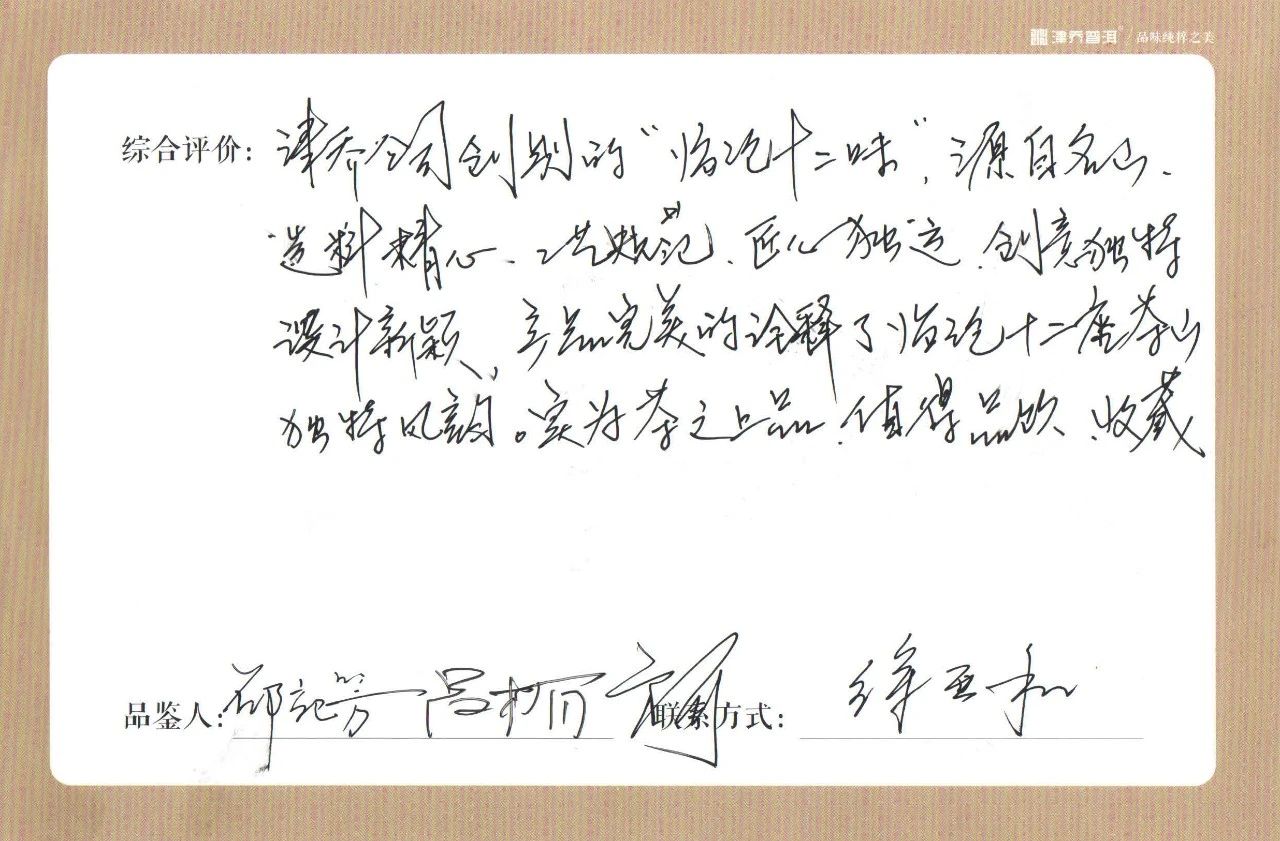 津乔普洱 / 品味纯粹之美
综合评价: 津乔公司创制的“临沧十二味”, 源自名山、
选料精心、工艺规范、匠心独运、创意独特
设计新颖, 产品完美的诠释了临沧十二座茶山
独特风韵。实为茶之上品、值得品饮、收藏
品鉴人: 联系方式: 徐亚和